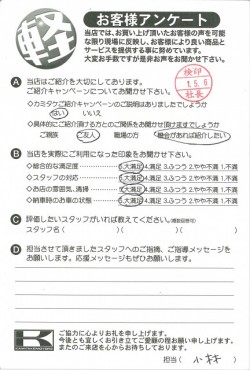 軽
お客様アンケート
当店では、お買い上げ頂いたお客様の声を可能
な限り現場に反映し、お客様により良い商品と
サービスを提供する事に努めています。
大変お手数ですが是非お声をお聞かせ下さい。
検印
15.6
社長
A 当店はご紹介を大切にしております。
ご紹介キャンペーンについてお聞かせ下さい。
◇カミタケご紹介キャンペーンのご説明はありましたでしょうか
はい いいえ
◇具体的にご紹介頂ける方との関係をお聞かせ頂けますでしょうか
ご親族 ご友人 職場の方 機会があれば紹介したい
B 当店を実際にご利用になった印象をお聞かせ下さい。
◇総合的な満足度 5.大満足 4.満足 3.ふつう 2.やや不満 1.不満
◇スタッフの対応 5.大満足 4.満足 3.ふつう 2.やや不満 1.不満
◇お店の雰囲気、清掃 5.大満足 4.満足 3.ふつう 2.やや不満 1.不満
◇納車時のお車の状態 5.大満足 4.満足 3.ふつう 2.やや不満 1.不満
C 評価したいスタッフがいれば教えてください。(複数回答可)
スタッフ名( )( )( )
D 担当させて頂きましたスタッフへのご指摘、ご指導メッセージを
お願いします。応援メッセージもぜひお願いします。
K
ご協力に心よりお礼を申し上げます。
今後とも宜しくお引き立てご愛顧の程お願い申し上げます。
またのご来店を心からお待ちしております。
担当( 小林 )